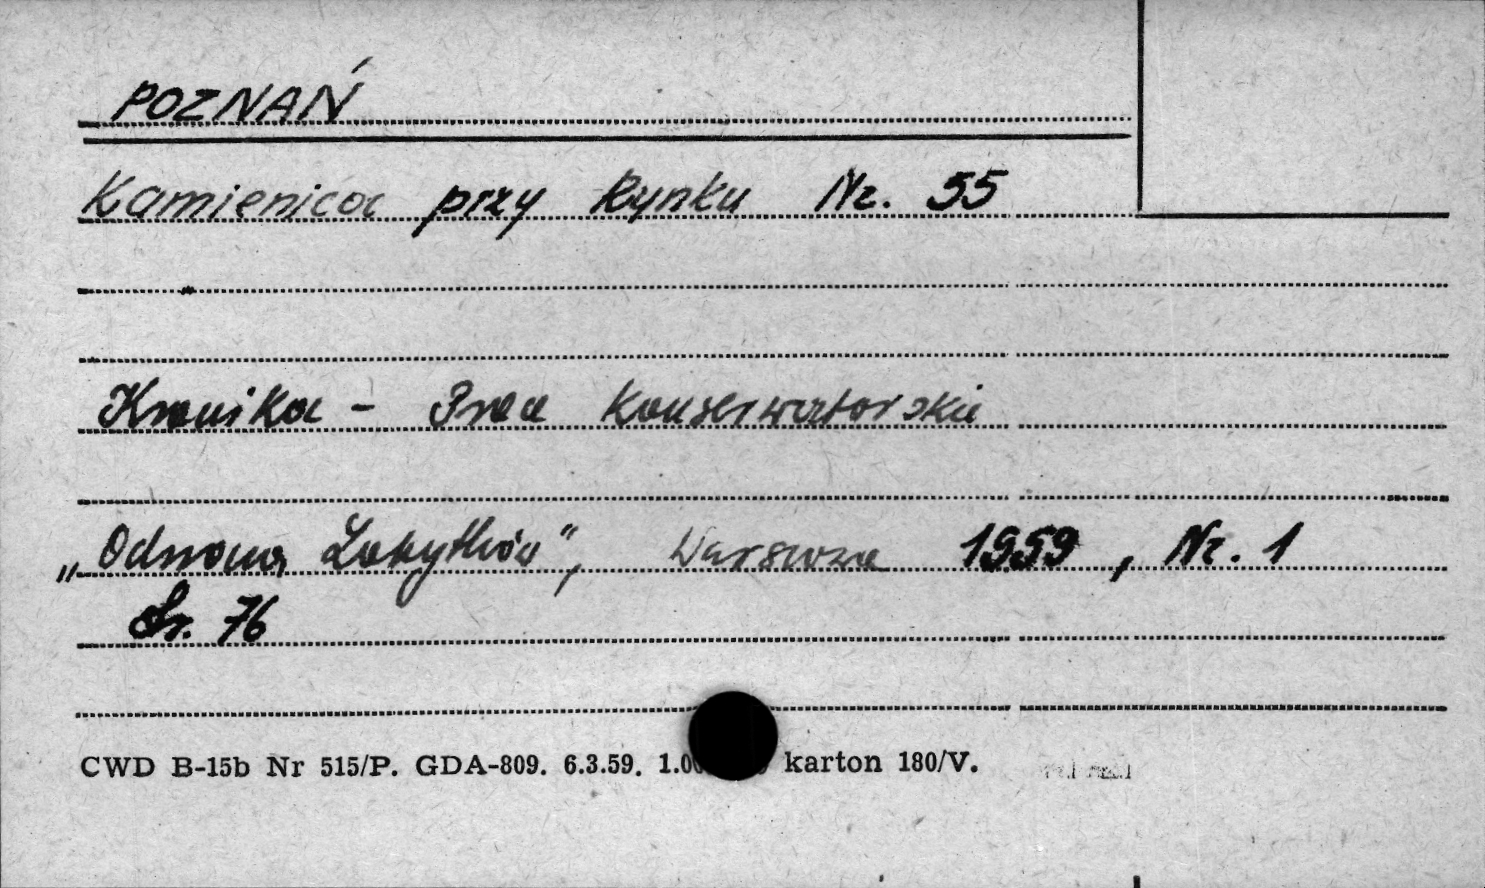 POZNAŃ
Kamienica przy Rynku Nr. 55
Kronika - Prace Konserwatorskie
„Odnowa Zabytków”, Warszawa 1959, Nr. 1
Str. 76
CWD B-15b Nr 515/P. GDA-809. 6.3.59. karton 180/V.